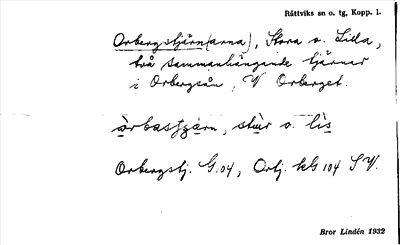 Rättviks sn o. tg, Kopp. l.
Orbergstjärn(arna), Stora o. Lilla,
två sammanhängande tjärnar
i Orbergsån, V Orberget.
stur o. lìs
Orbergstj. G.04, Orbj. kG 104 S V.
Bror Lindén 1932